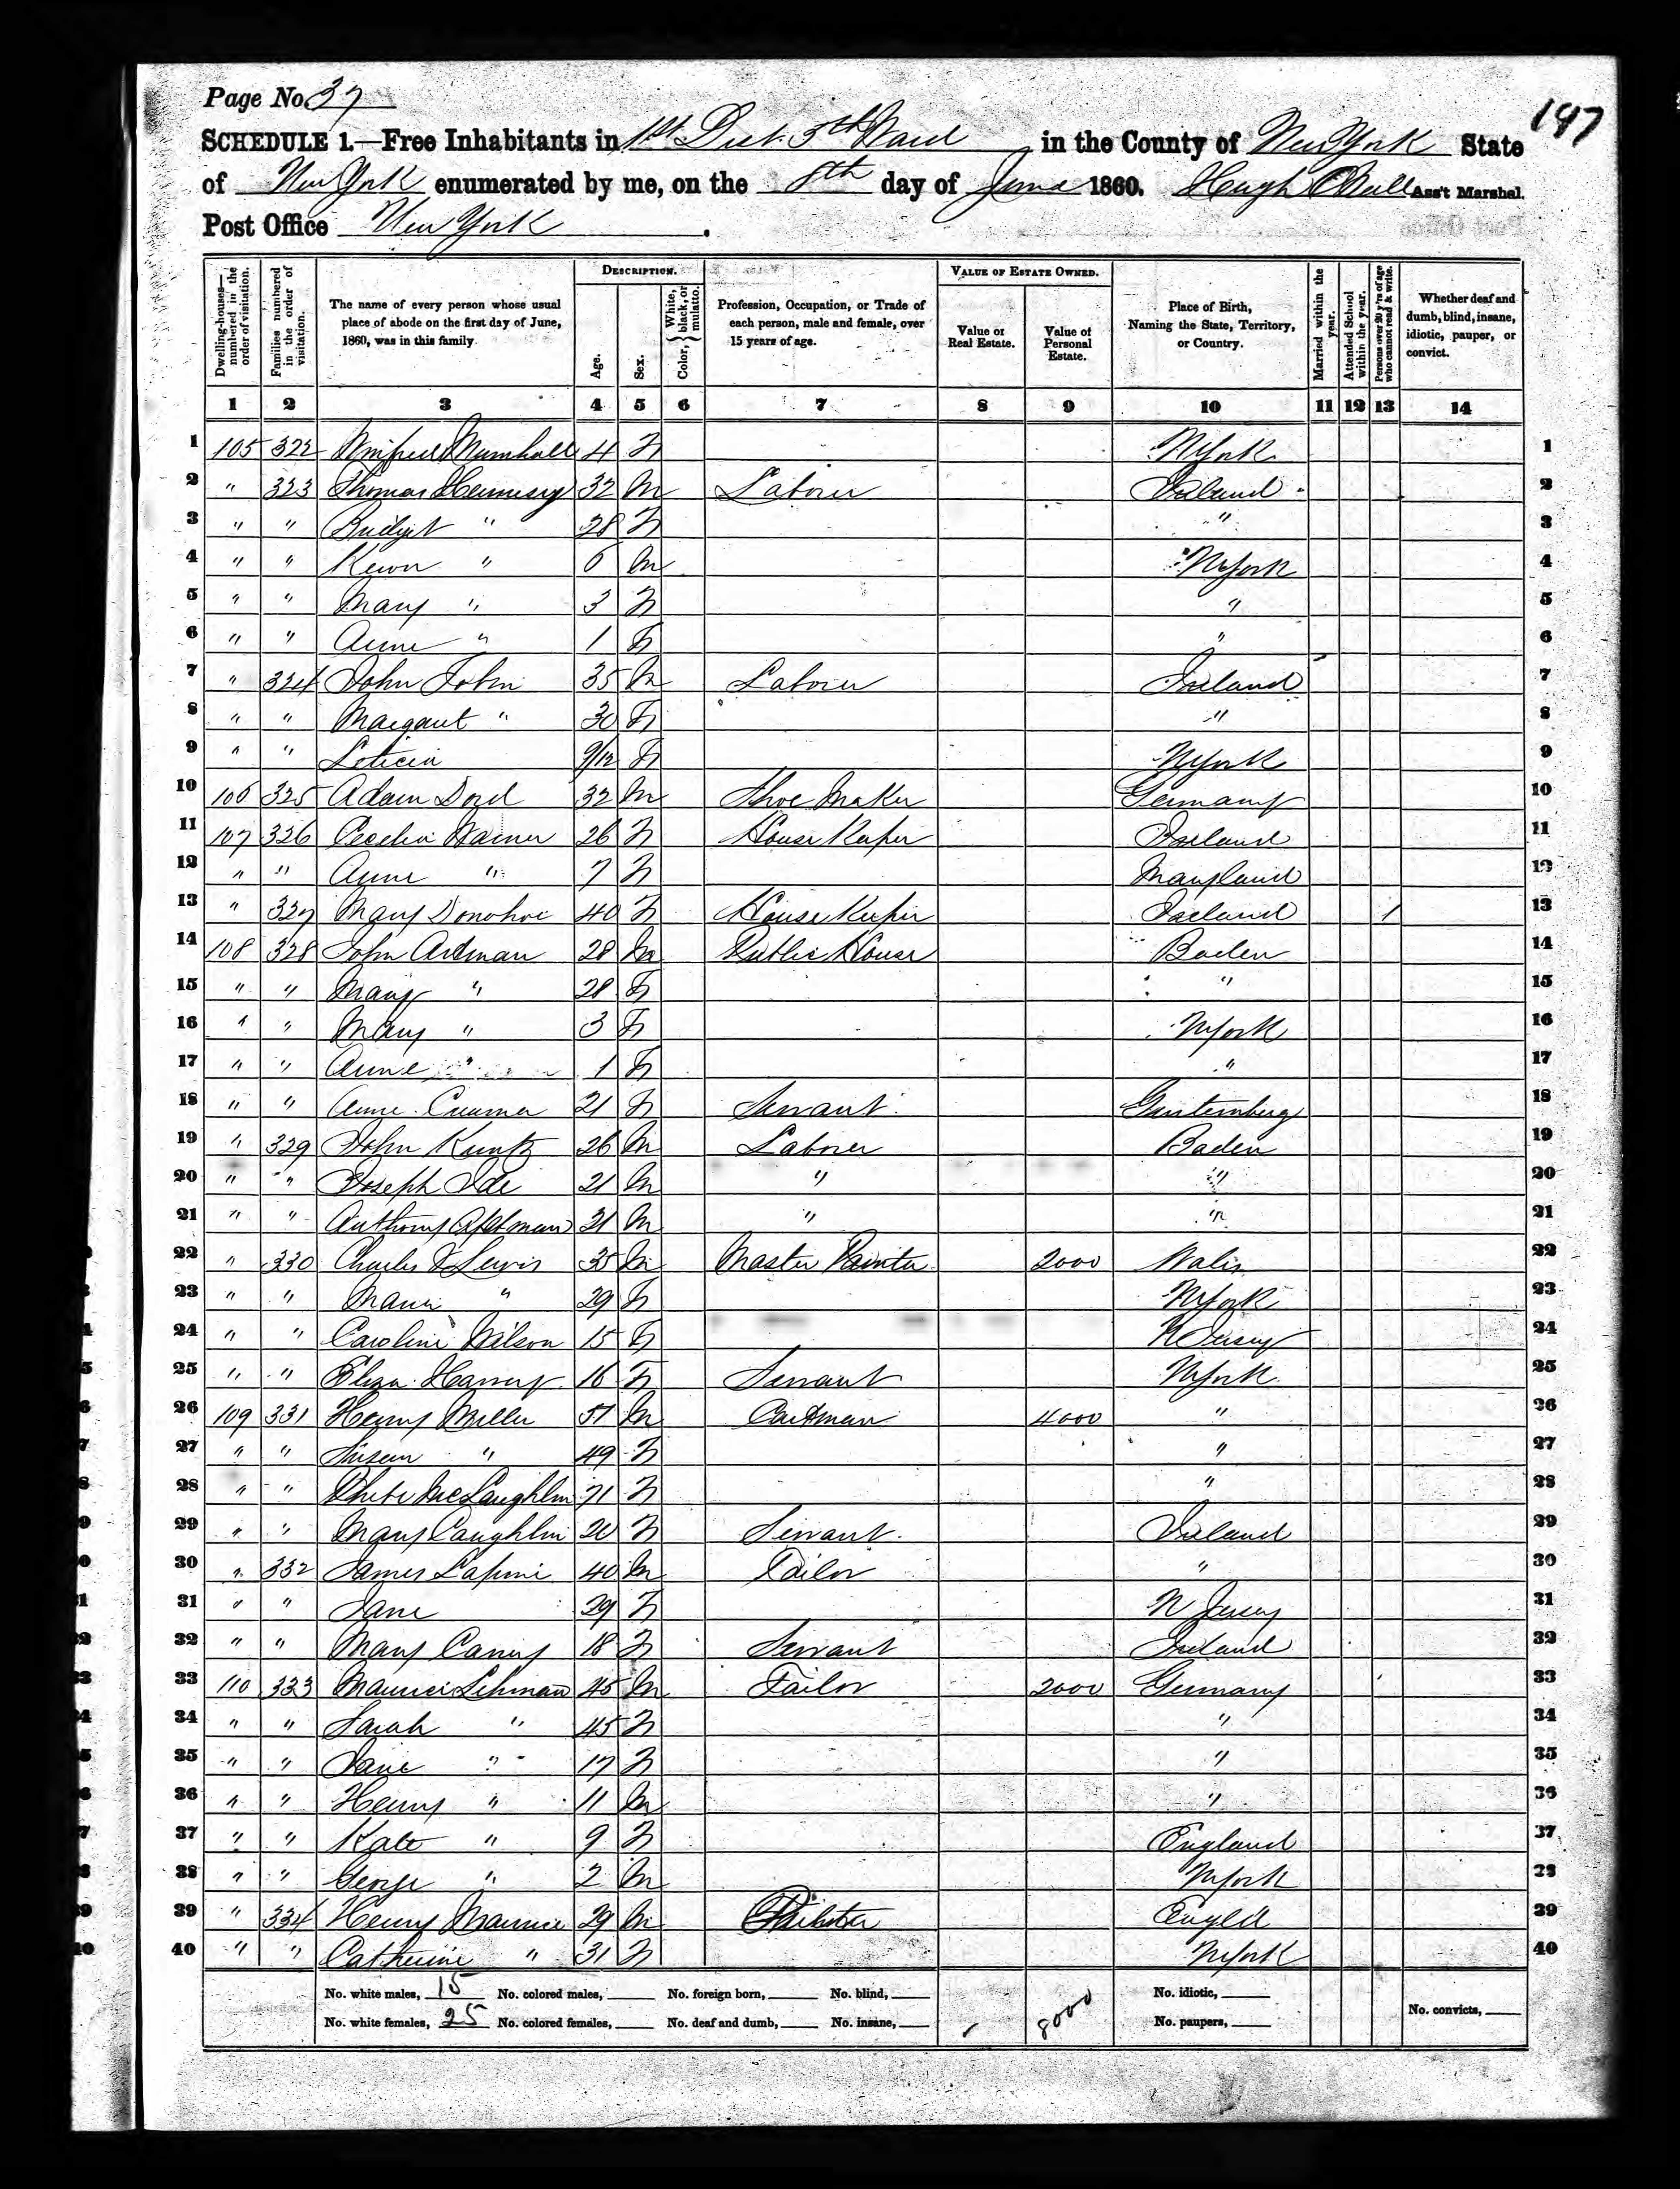 Page No. 37
197
SCHEDULE 1.—Free Inhabitants in 1st Dist. 5th Ward in the County of New York State
of New York enumerated by me, on the 8th day of June 1860. Hugh Ass't Marshal.
Post Office New York.
Dwelling-houses—numbered in the order of visitation.
Families numbered in the order of visitation.
The name of every person whose usual place of abode on the first day of June, 1860, was in this family.
DESCRIPTION.
Age.
Sex.
Color, { White, black, or mulatto.
Profession, Occupation, or Trade of each person, male and female, over 15 years of age.
VALUE OF ESTATE OWNED.
Value of Real Estate.
Value of Personal Estate.
Place of Birth, Naming the State, Territory, or Country.
Married within the year.
Attended School within the year.
Persons over 20 y'rs of age who cannot read & write.
Whether deaf and dumb, blind, insane, idiotic, pauper, or convict.
1 2 3 4 5 6 7 8 9 10 11 12 13 14
1 105 322 4 F NYork 1
2 " 323 Thomas Hennesy 32 M Laborer Ireland 2
3 " " Bridget " 28 F " 3
4 " " " 6 M NYork 4
5 " " Mary " 3 F " 5
6 " " Anne " 1 F " 6
7 " 324 John Tobin 35 M Laborer Ireland 7
8 " " Margaret " 30 F " 8
9 " " Leticia 9/12 F NYork 9
10 106 325 Adam 32 M Shoe Maker Germany 10
11 107 326 Cecelia 26 F House Keeper Ireland 11
12 " " Anne " 7 F Maryland 12
13 " 327 Mary Donohoe 40 F House Keeper Ireland 1 13
14 108 328 John Artman 28 M Public House Baden 14
15 " " Mary " 28 F " 15
16 " " Mary " 3 F NYork 16
17 " " Anne " 1 F " 17
18 " " Anne 21 F Servant 18
19 " 329 John Kuntz 26 M Laborer Baden 19
20 " " Joseph Ide 21 M " " 20
21 " " Anthony 31 M " " 21
22 " 330 Charles Lewis 35 M Master Painter 2000 Wales 22
23 " " Maria " 29 F NYork 23
24 " " Caroline Wilson 15 F NJersey 24
25 " " Eliza 16 F Servant NYork 25
26 109 331 Henry Miller 51 M Cartman 4000 " 26
27 " " Susan " 49 F " 27
28 " " Phebe McLaughlin 71 F " 28
29 " " Mary Caughlin 20 F Servant Ireland 29
30 " 332 James 40 M Tailor " 30
31 " " Jane 29 F N Jersey 31
32 " " Mary Carey 18 F Servant Ireland 32
33 110 333 Maurice Lehman 45 M Tailor 2000 Germany 33
34 " " Sarah " 45 F " 34
35 " " Jane " 17 F " 35
36 " " Henry " 11 M " 36
37 " " Kate " 9 F England 37
38 " " George " 2 M NYork 38
39 " 334 Henry Maurice 29 M Painter Engld 39
40 " " Catherine " 31 F NYork 40
No. white males, 15 No. colored males, No. foreign born, No. blind, 8000 No. idiotic, No. convicts,
No. white females, 25 No. colored females, No. deaf and dumb, No. insane, No. paupers,